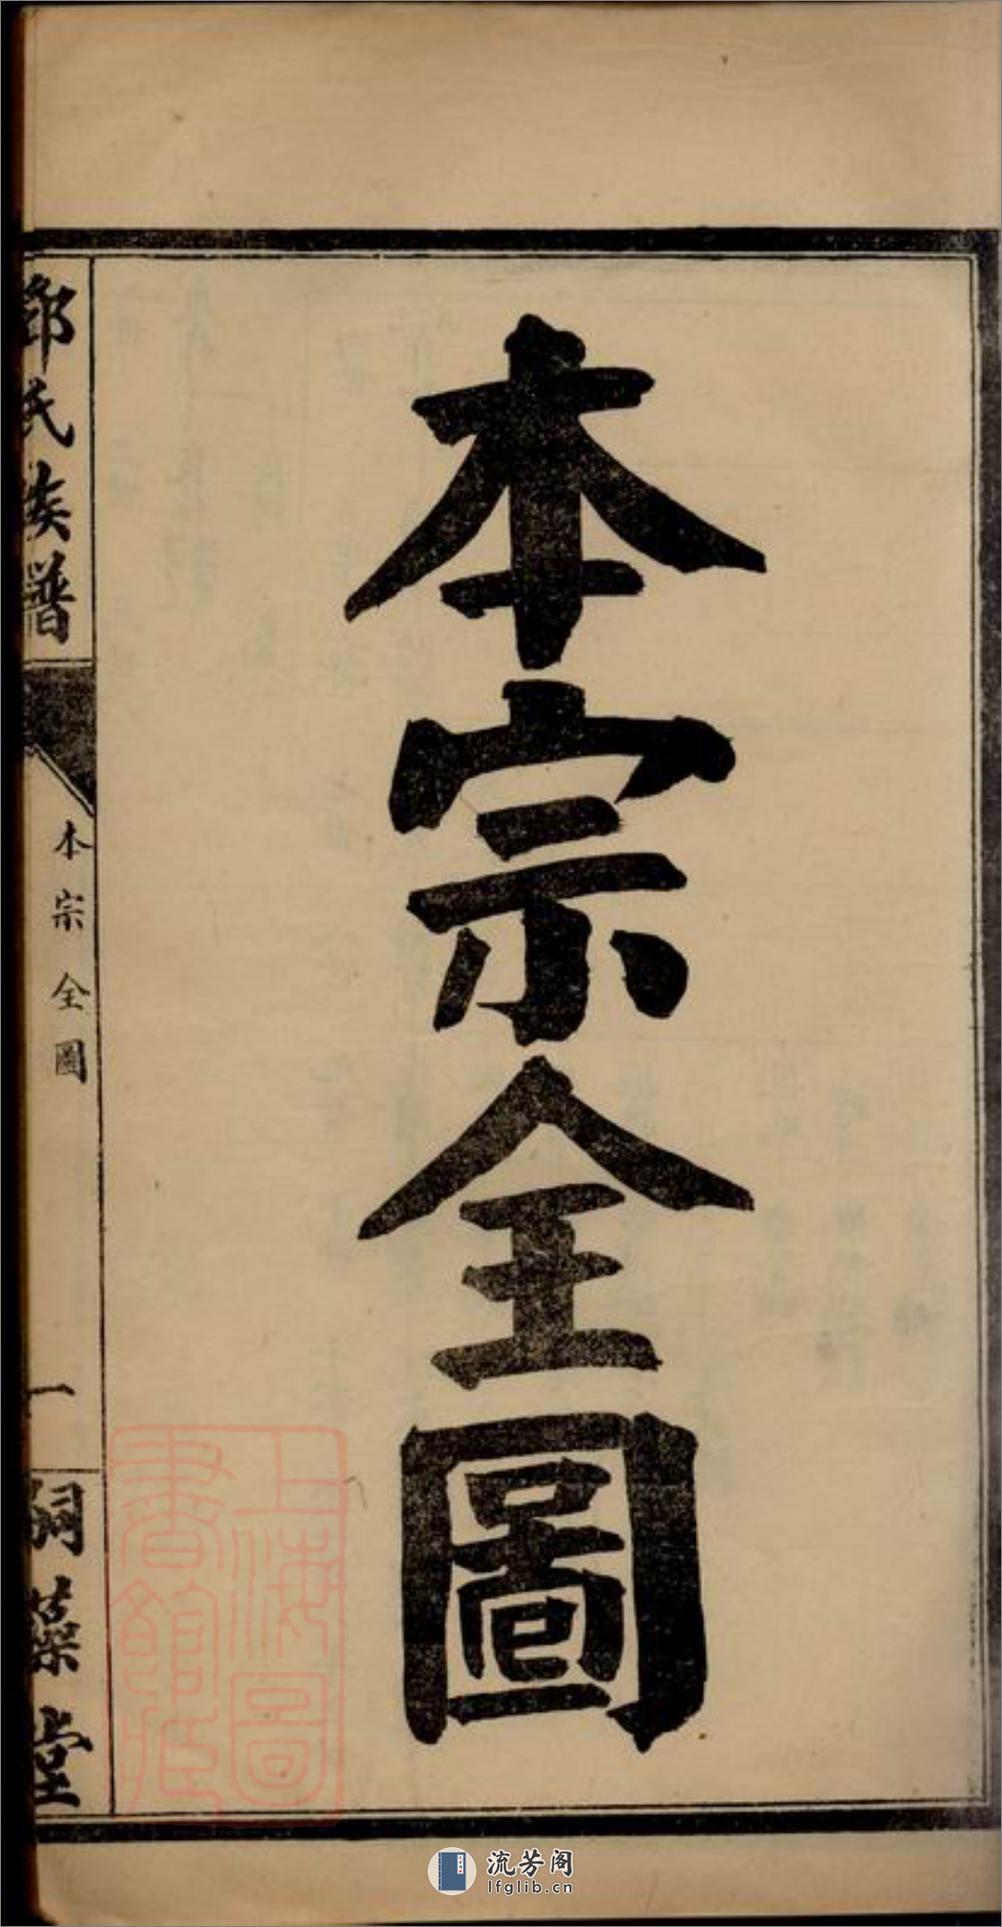 本宗全圖
氏族譜
本宗全圖
一
詞藻堂
上海圖
書館藏
流芳阁
lfglib.cn